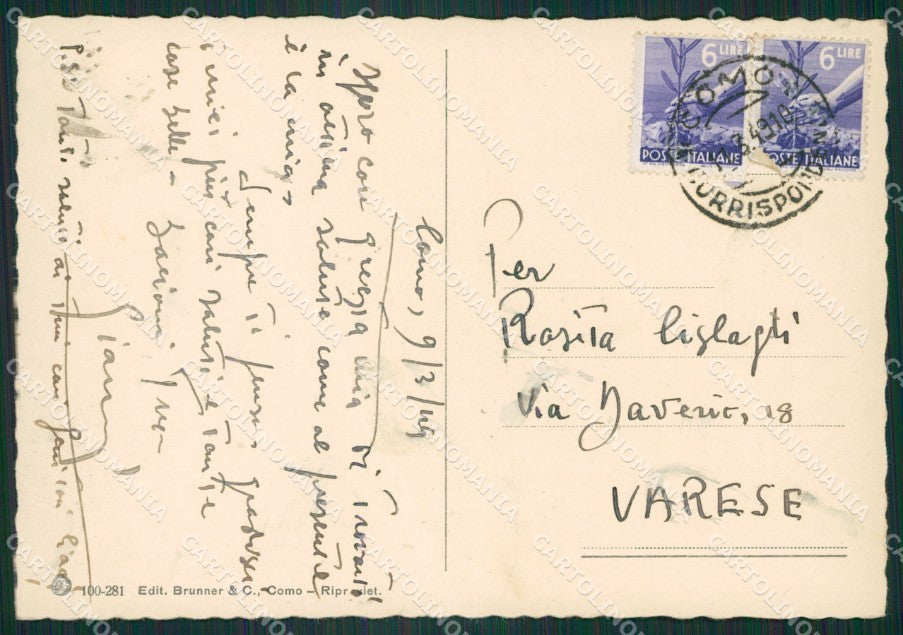 Como, 9/3/49
Spero con questa mia di trovarti
in ottima salute come al presente
è la mia.
Sempre ti penso, gradisci
i miei più cari saluti e tante
cose belle.
Gianni
P.S. Tanti saluti ai tuoi cari genitori. Ciao
100-281 Edit. Brunner & C., Como – Ripr. Viet.
6 LIRE
POSTE ITALIANE
6 LIRE
POSTE ITALIANE
COMO
CORRISPOND
Per
Rosita Cislaghi
Via Daverio, 18
VARESE